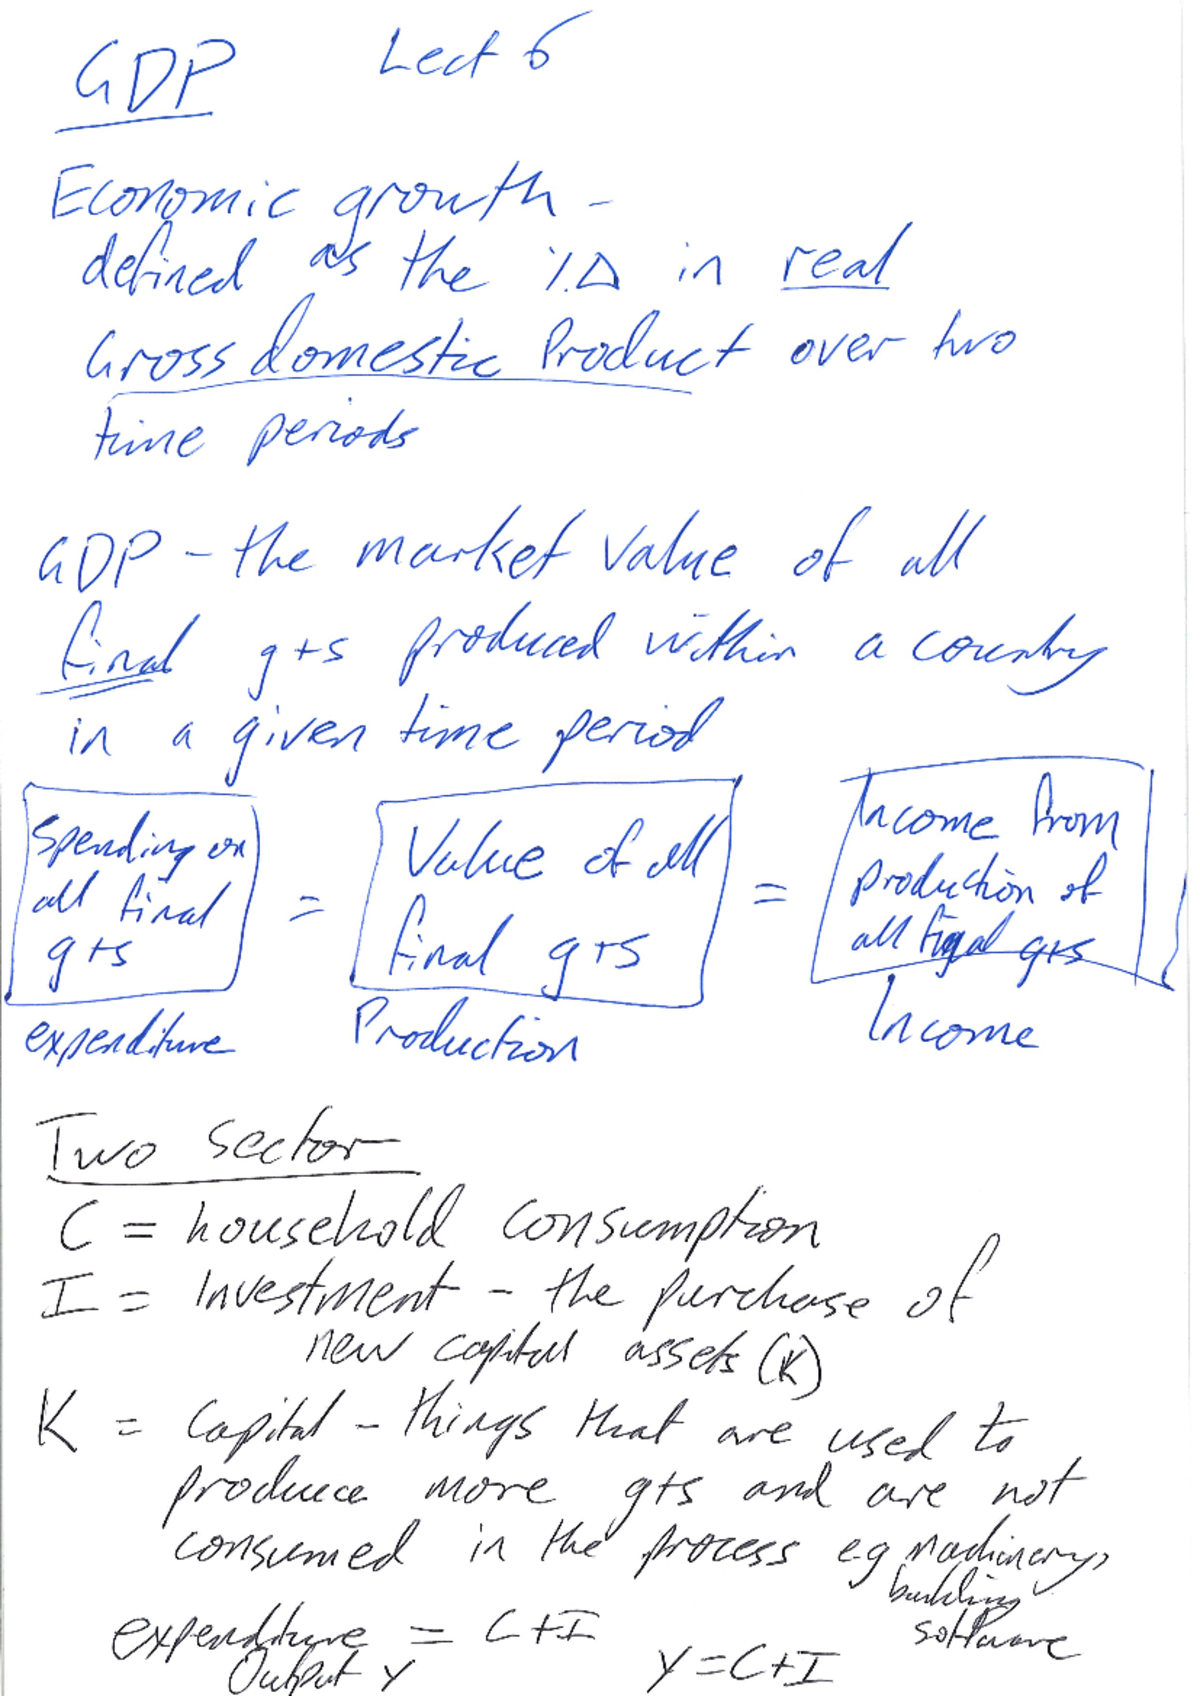 GDP Lect 6
Economic growth -
defined as the %Δ in real
Gross domestic Product over two
time periods
GDP - the market value of all
final g+s produced within a country
in a given time period
Spending on
all final
g+s
=
Value of all
final g+s
=
Income from
production of
all final g+s
expenditure
Production
Income
Two sector
C = household consumption
I = Investment - the purchase of
new capital assets (K)
K = Capital - things that are used to
produce more g+s and are not
consumed in the process eg machinery,
building
software
expenditure = C+I
Output Y
Y = C+I